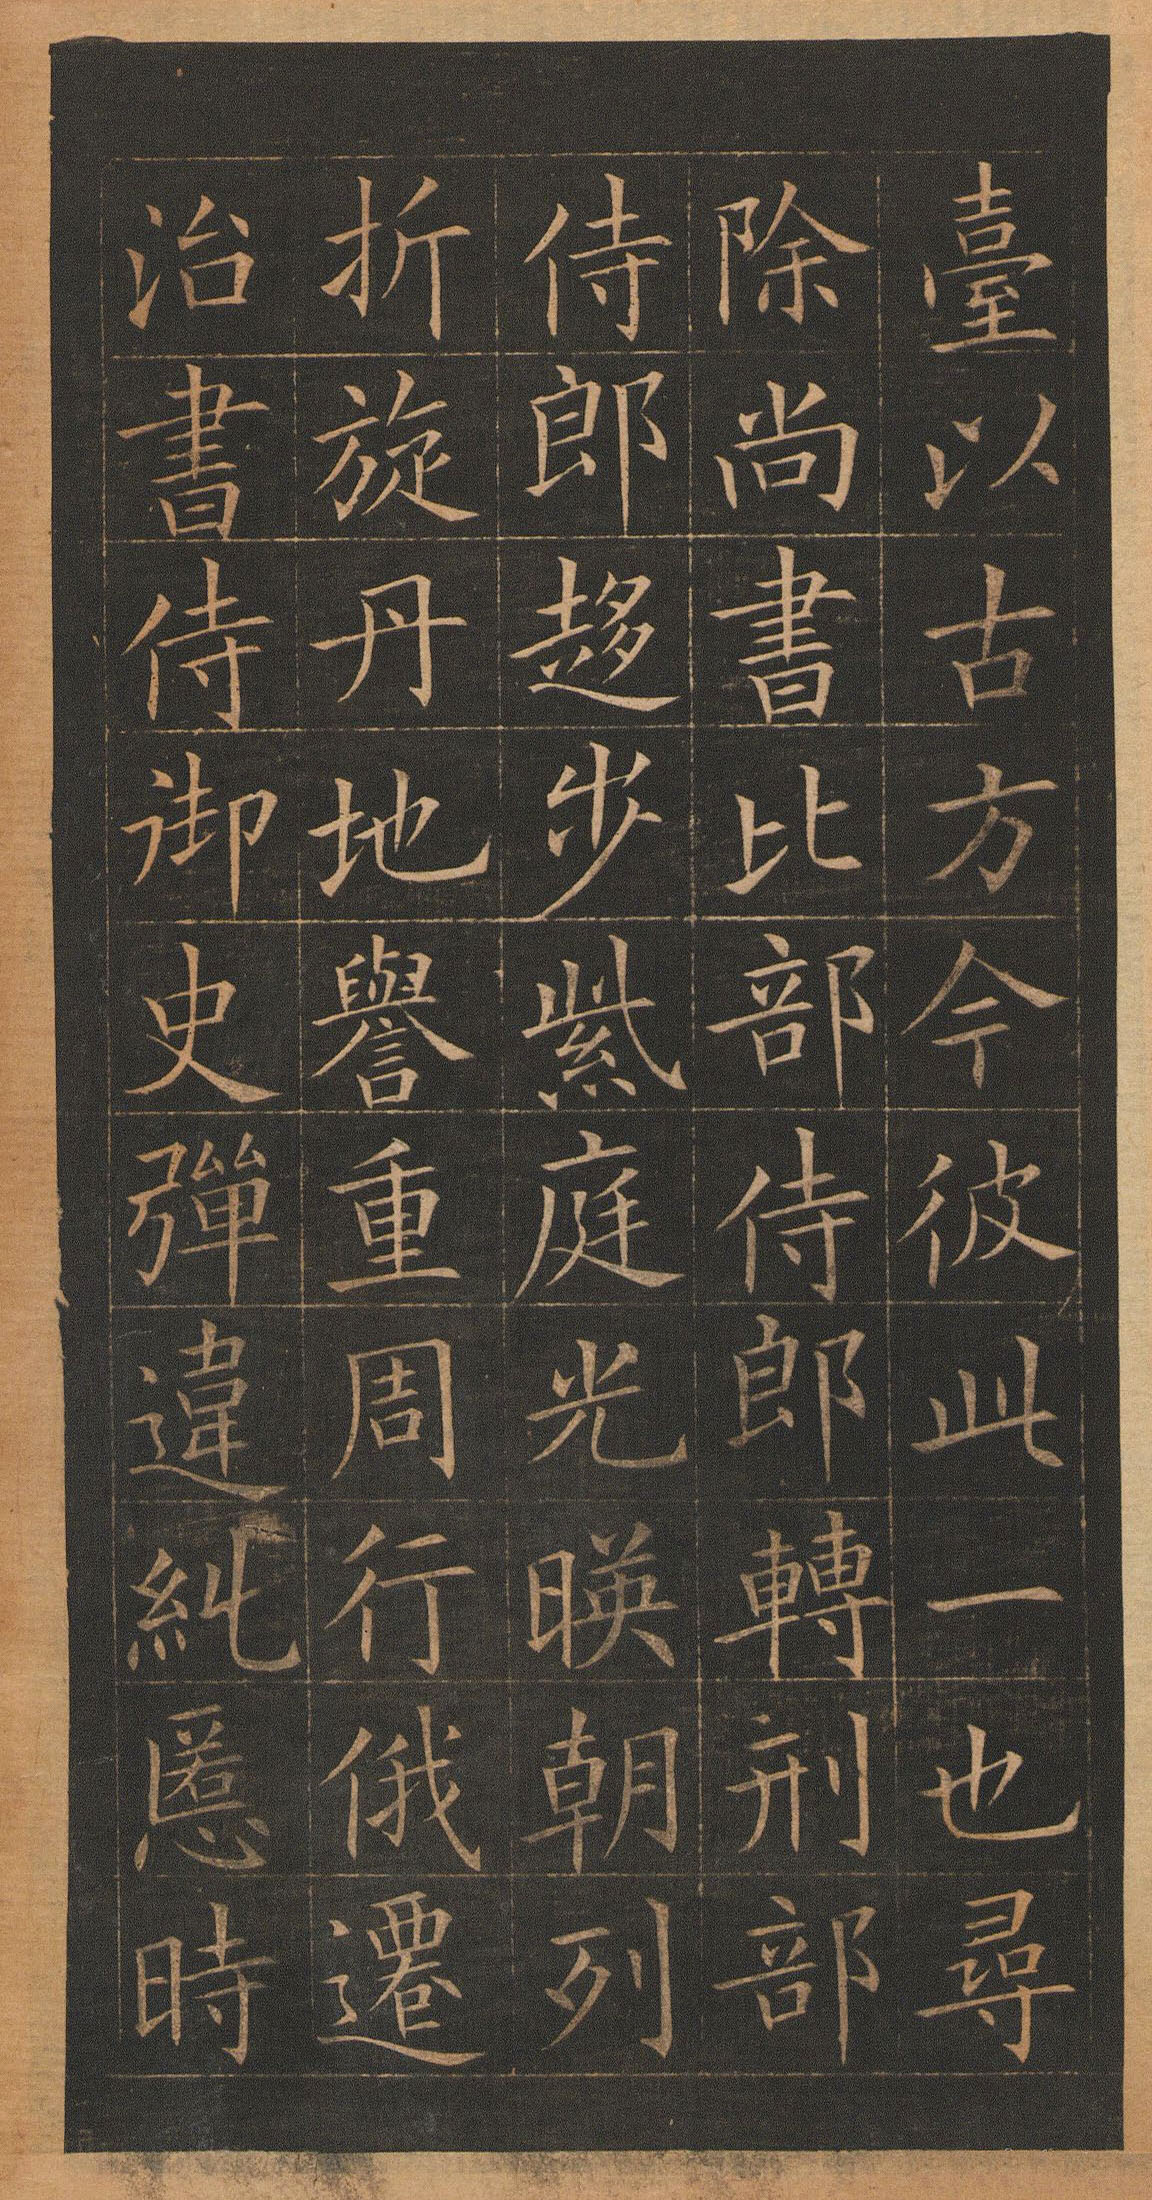 臺以古方今彼此一也尋
除尚書比部侍郎轉刑部
侍郎趍步紫庭光暎朝列
折旋丹地譽重周行俄遷
治書侍御史彈違糺慝時